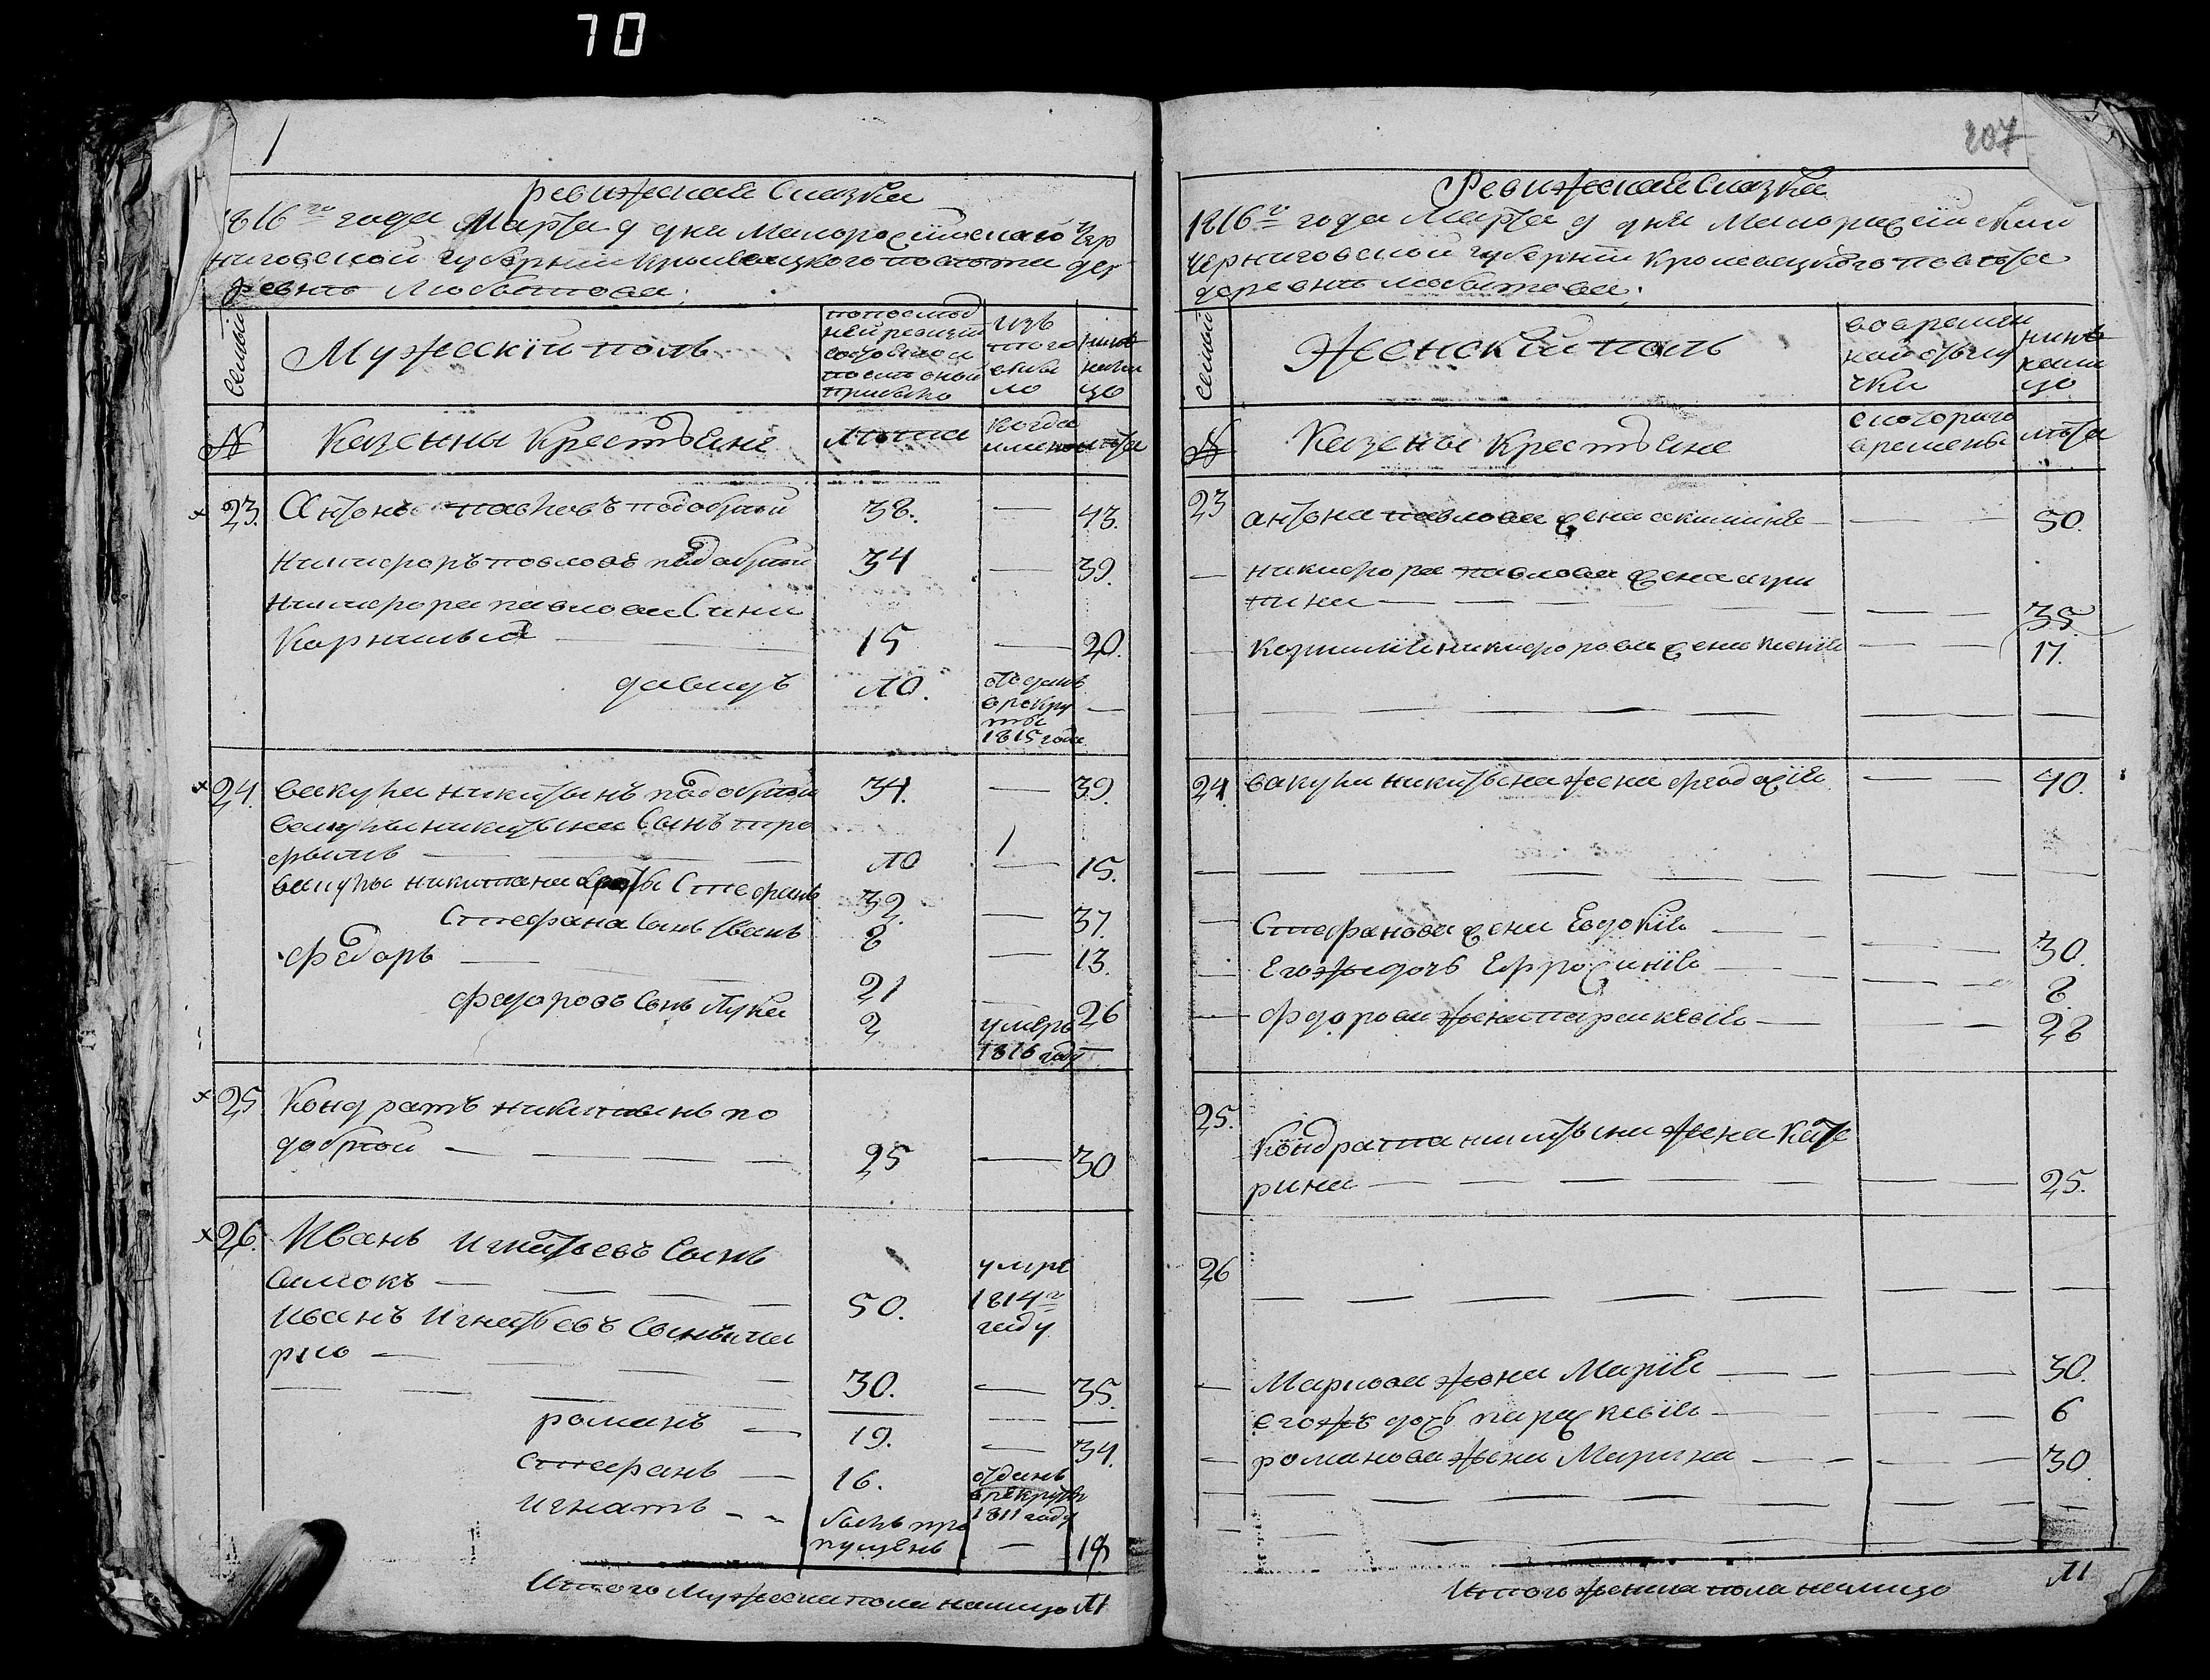 70
1
ревижская Сказка
1816го года Марта 9 дня Малоросийского Чер
ниговской губернии Кролевецкого повета де
ревне Любитова
семьи
Мужеский полъ
по послед
ней ревизии
состояло и
после оной
прибыло
изъ
того
выбы
ло
ныне
нали
цо
№
Казенны Крестьяне
лета
когда
именно
лета
23. Антонъ павловъ подобный 38. — 43.
никифоръ павловъ подобный 34 — 39.
никифора павлова Сини
Карнилий — 15 — 20.
давидъ 10. отданъ
в рекру
ты —
1815 года
24. вакула никитынъ подобный 34. — 39.
вакулы никитына Сынъ тро
фымъ — 10 — 15.
вакулы никитина братъ Стефанъ 32. — 37.
Стефана Сынъ Иванъ 8 — 13.
Федоръ — 21 — 26
федоровъ Сынъ Лука 2 умеръ
1816 году —
25 Кондратъ никитинъ по
добный — 25 — 30
26. Иванъ Игнатьевъ Сынъ
Самокъ — 50. умре
1814го
году
Иванъ Игнатьевъ Сынъ ма
рко — 30. — 35.
романъ — 19. — 34.
Стефанъ — 16. отданъ
в рекруты
1811 году
Игнатъ — былъ про
пущенъ — 19.
Итого Мужеска пола налицо 11
207
Ревижская Сказка
1816го года Марта 9 дня Малоросийской
Черниговской губернии Кролевецкого повета
деревне любитова
семьи
Женский полъ
во времен
ной отлу
чки
ныне
нали
цо
№
Казены Крестьяне
с которого
времены
лета
23 антона павлова жена акилина — 50.
— никифора павлова жена ага
пина — 35.
— Карнилия никифорова жена Ксения — 17.
24. вакулы никитына жена феодосия — 40.
— Стефанова жена Евдокия — 30.
— Егожъ дочь Ефросиния — 8.
— Федорова жена параскевия — 28
25. Кондрата никитына жена Кате
рина — 25.
26
— Маркова жена Мария — 30.
— егожъ дочь параскевия — 6
— романова жена Марина — 30.
Итого женска пола налицо 11